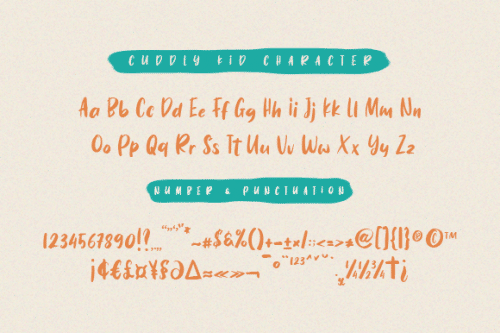 CUDDLY KID CHARACTER
Aa Bb Cc Dd Ee Ff Gg Hh Ii Jj Kk Ll Mm Nn
Oo Pp Qq Rr Ss Tt Uu Vv Ww Xx Yy Zz
NUMBER & PUNCTUATION
1234567890!?.,,"‚"",„"* ~#$&%()+-±×/:÷<=>≠@[]{|}®©™
¡¢€£¤¥§∂∆≈≪≫¬¯°¨¹²³^ˇ˘˙¸¼½¾†¿